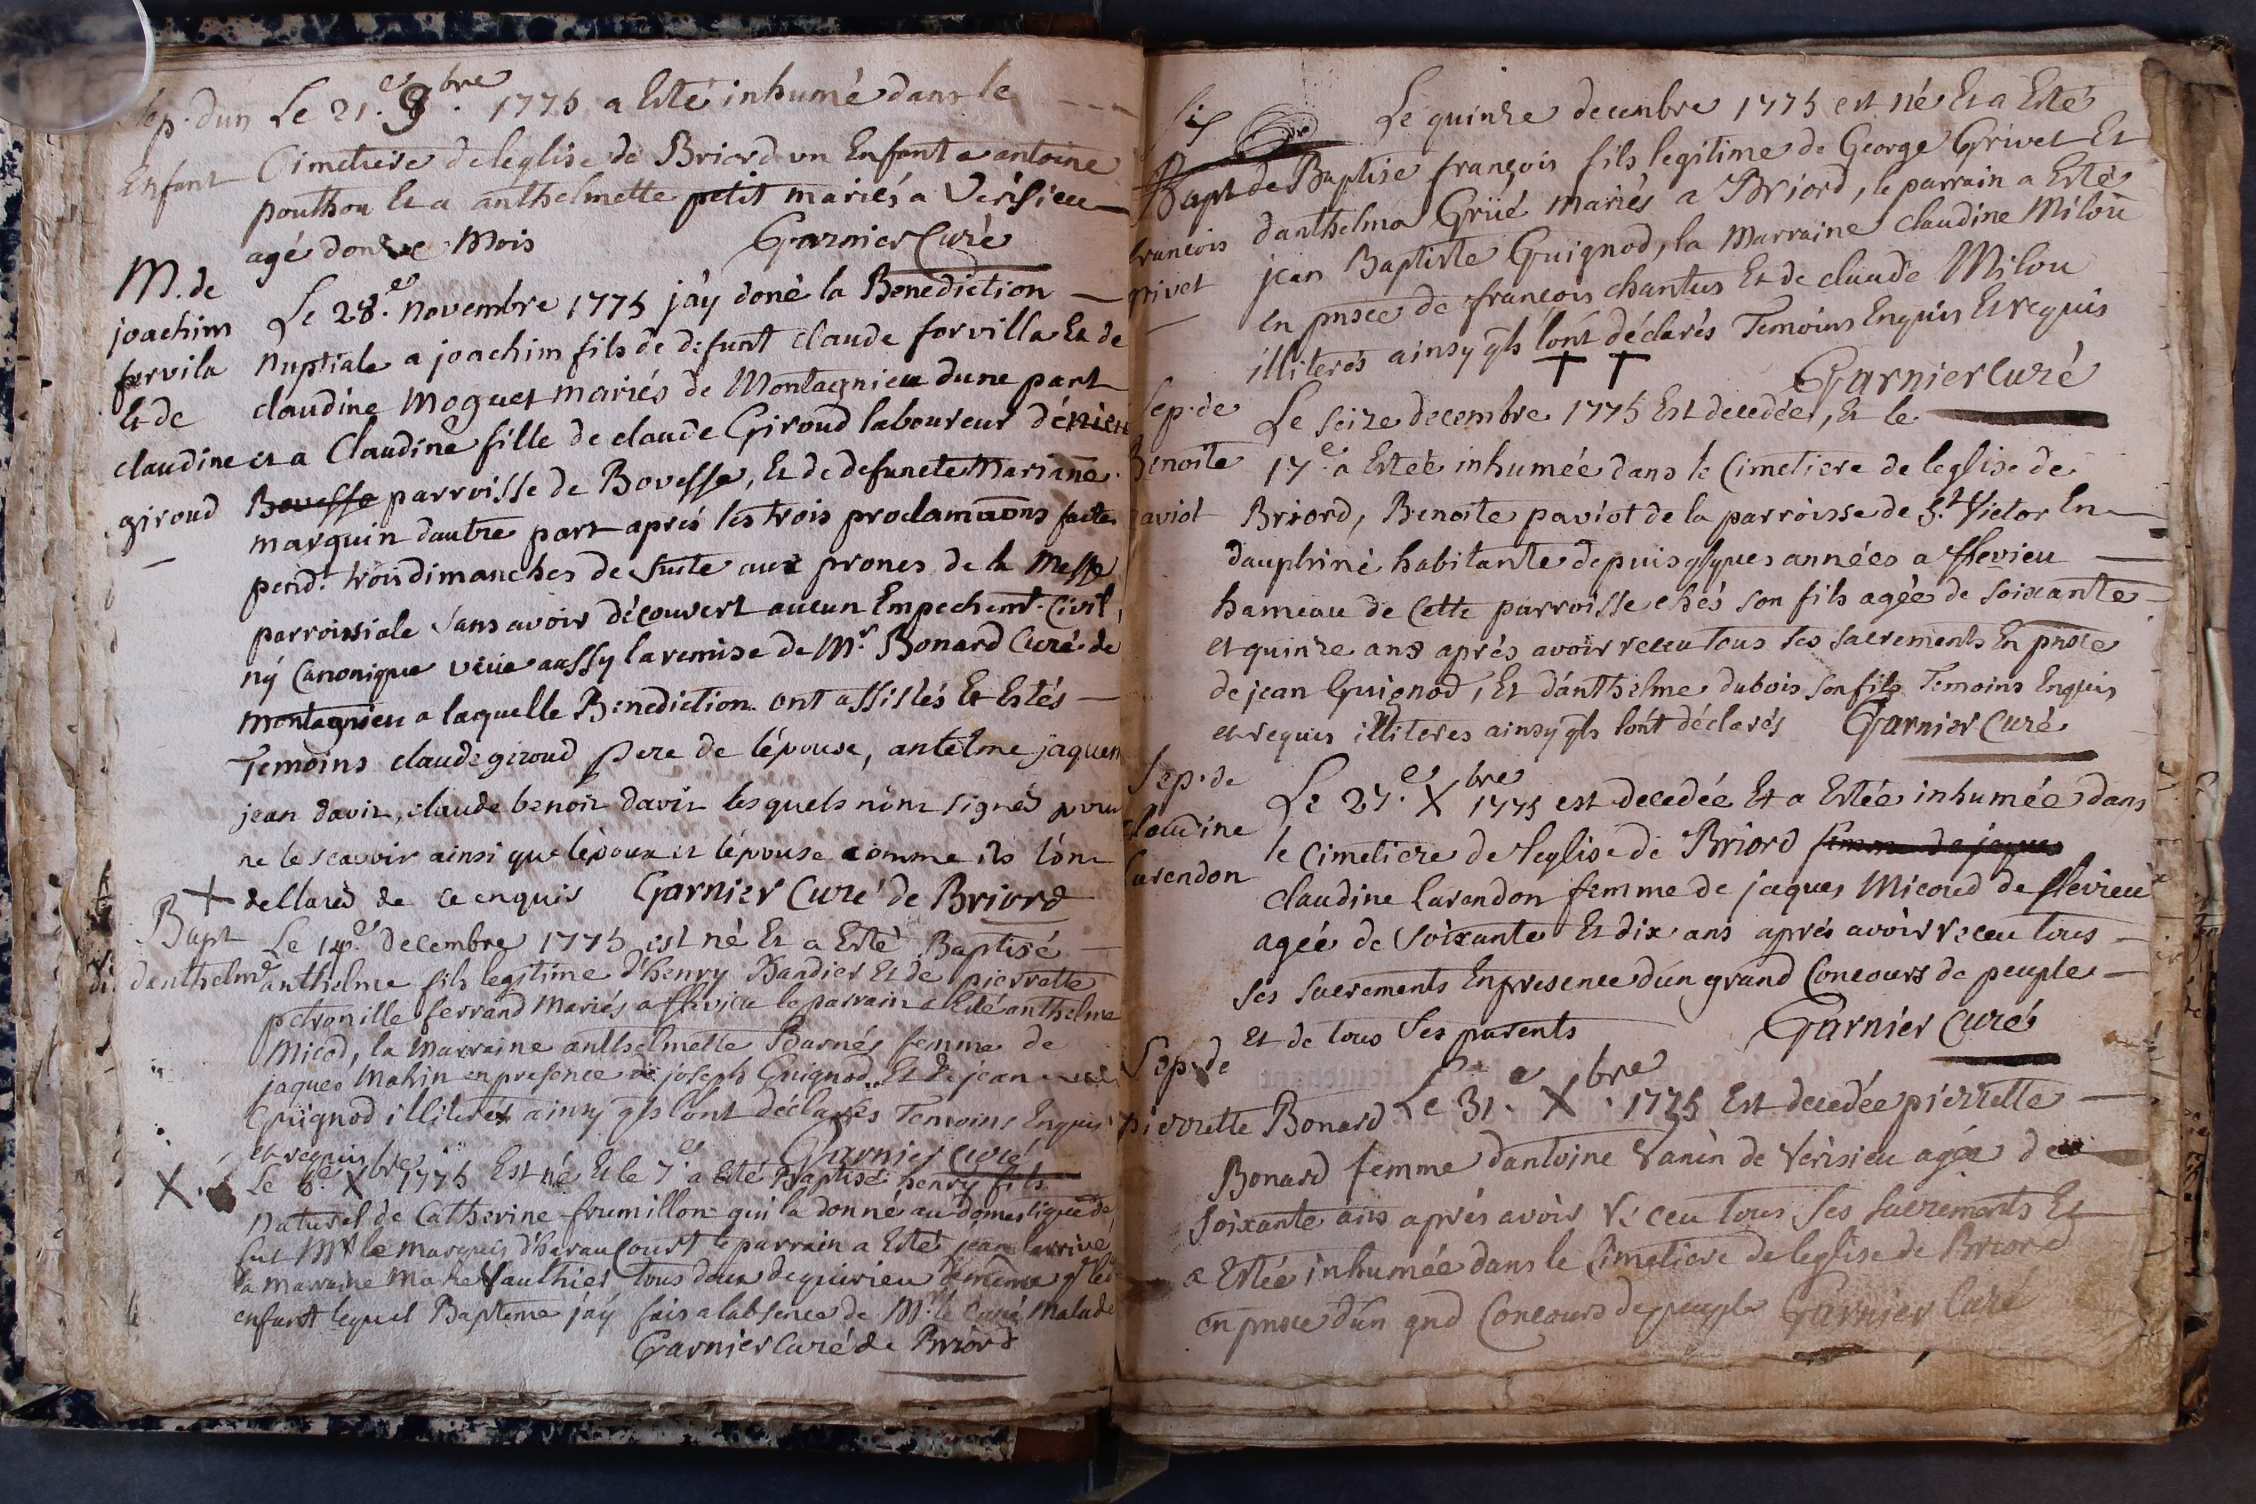 Sep. dun
Enfant
Le 21.e 9.bre 1775 a Esté inhumé dans le
Cimetiere de leglise de Briord un Enfant a antoine
pouthon et a anthelmette petit mariés a Verisieu
agé donze Mois Garnier Curé
M. de
joachim
forvila
Et de
claudine
giroud
Le 28.e novembre 1775 jáy doné la Benediction
nuptiale a joachim fils de defunt claude forvilla Et de
claudine Moguet mariés de Montagnieu dune part
et a Claudine fille de claude Giroud laboureur
Bovesse parroisse de Bovesse, Et de defuncte Mariane
marquin dautre part aprés les trois proclamaons faites
pend.t trois dimanches de suite aux prones de la Messe
parroissiale sans avoir découvert aucun Empechemt. Civil,
ny Canonique veüe aussy la remise de Mr. Bonard Curé de
montagnieu a laquelle Benediction ont assistés Et Estés
Temoins claude giroud pere de lépouse, antelme jaquem
jean davir, claude benoit davir lesquels nónt signés pour
ne le scavoir ainsi que lépoux et lépouse comme ils lónt
dellaré de ce enquis Garnier Curé de Briord
Bapt
danthelme
Le 14.e decembre 1775 est né Et a Esté Baptisé
anthelme fils legitime d'henry Bandier Et de pierrette
petronille ferrand Mariés a flevieu le parrain a Esté anthelme
Micod, la Marraine anthelmette Barné femme de
jaques Mahin en presence de joseph Guignod Et de jean
Guignod illiterés ainsy qls lont déclarés Temoins Enquis
et requis Garnier Curé
Le 6.e Xbre 1775 Est né Et le 7.e a Esté Baptisé henry fils
naturel de Catherine frumillon qui la donné au domestique de
fut Mr le Marquis d'haraucourt le parrain a Esté jean larrive
la marraine Marie Vauthier tous deux de quirieu de même que
enfant lequel Bapteme jáy fais a labsence de Mr. le Curé Malade
Garnier Curé de Briord
Bapt de
francois
grivet
Le quinze decembre 1775 est né Et a Esté
Baptisé françois fils legitime de George Grivet Et
danthelma Grüé mariés a Briord, le parrain a Esté
jean Baptiste Guignod, la Marraine claudine Milou
en pnsce de françois chantus Et de claude Milou
illiterés ainsy qls lónt déclarés Temoins Enquis Et requis
Garnier Curé
Sep. de
Benoite
paviot
Le seize decembre 1775 Est decedée, Et le
17.e a Estée inhumée dans le Cimetiere de leglise de
Briord, Benoite paviot de la parroisse de St. Victor En
dauphiné habitante depuis qlques années a flevieu
hameau de Cette parroisse chés son fils agée de soixante
et quinze ans aprés avoir receu tous ses sacrements En pnsce
de jean Guignod, Et dánthelme dubois son fils Temoins Enquis
et requis illiteres ainsy qls lónt déclarés Garnier Curé
Sep. de
claudine
larendon
Le 27.e Xbre 1775 est decedée Et a Estée inhumée dans
le Cimetiere de leglise de Briord femme de jaques
claudine larendon femme de jaques Micoud de flevieu
agée de soixante Et dix ans aprés avoir receu tous
ses sacrements En presence dún grand Concours de peuple
Et de tous ses parents Garnier Curé
Sep. de
pierrette Bonard
Le 31.e Xbre 1775 Est decedée pierrette
Bonard femme dantoine Vanin de Verisieu agée de
soixante ans aprés avoir receu tous ses sacrements Et
a Estée inhumée dans le Cimetiere de leglise de Briord
en pnsce dún gnd Concours de peuple Garnier Curé